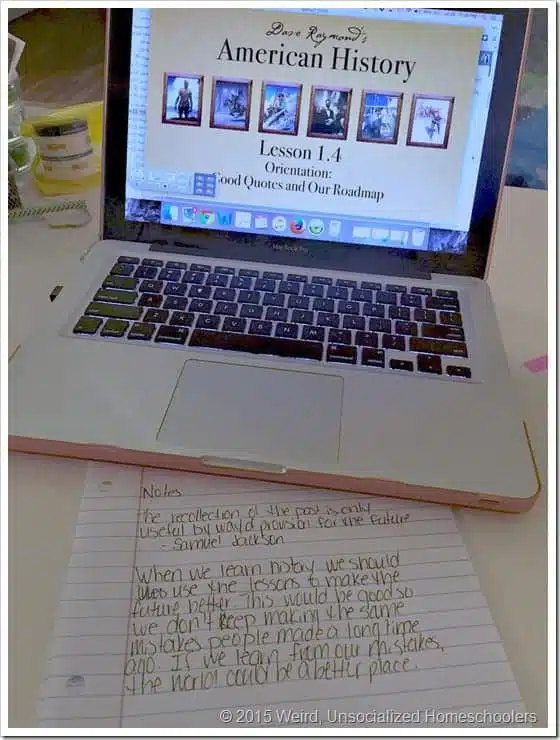 Dave Raymond's
American History
Lesson 1.4
Orientation:
Good Quotes and Our Roadmap
MacBook Pro
Notes
the recollection of the past is only
useful by way of provision for the future
- Samuel Jackson
When we learn history we should
use the lessons to make the
future better. This would be good so
we don't keep making the same
mistakes people made a long time
ago. If we learn from our mistakes,
the world could be a better place.
© 2015 Weird, Unsocialized Homeschoolers